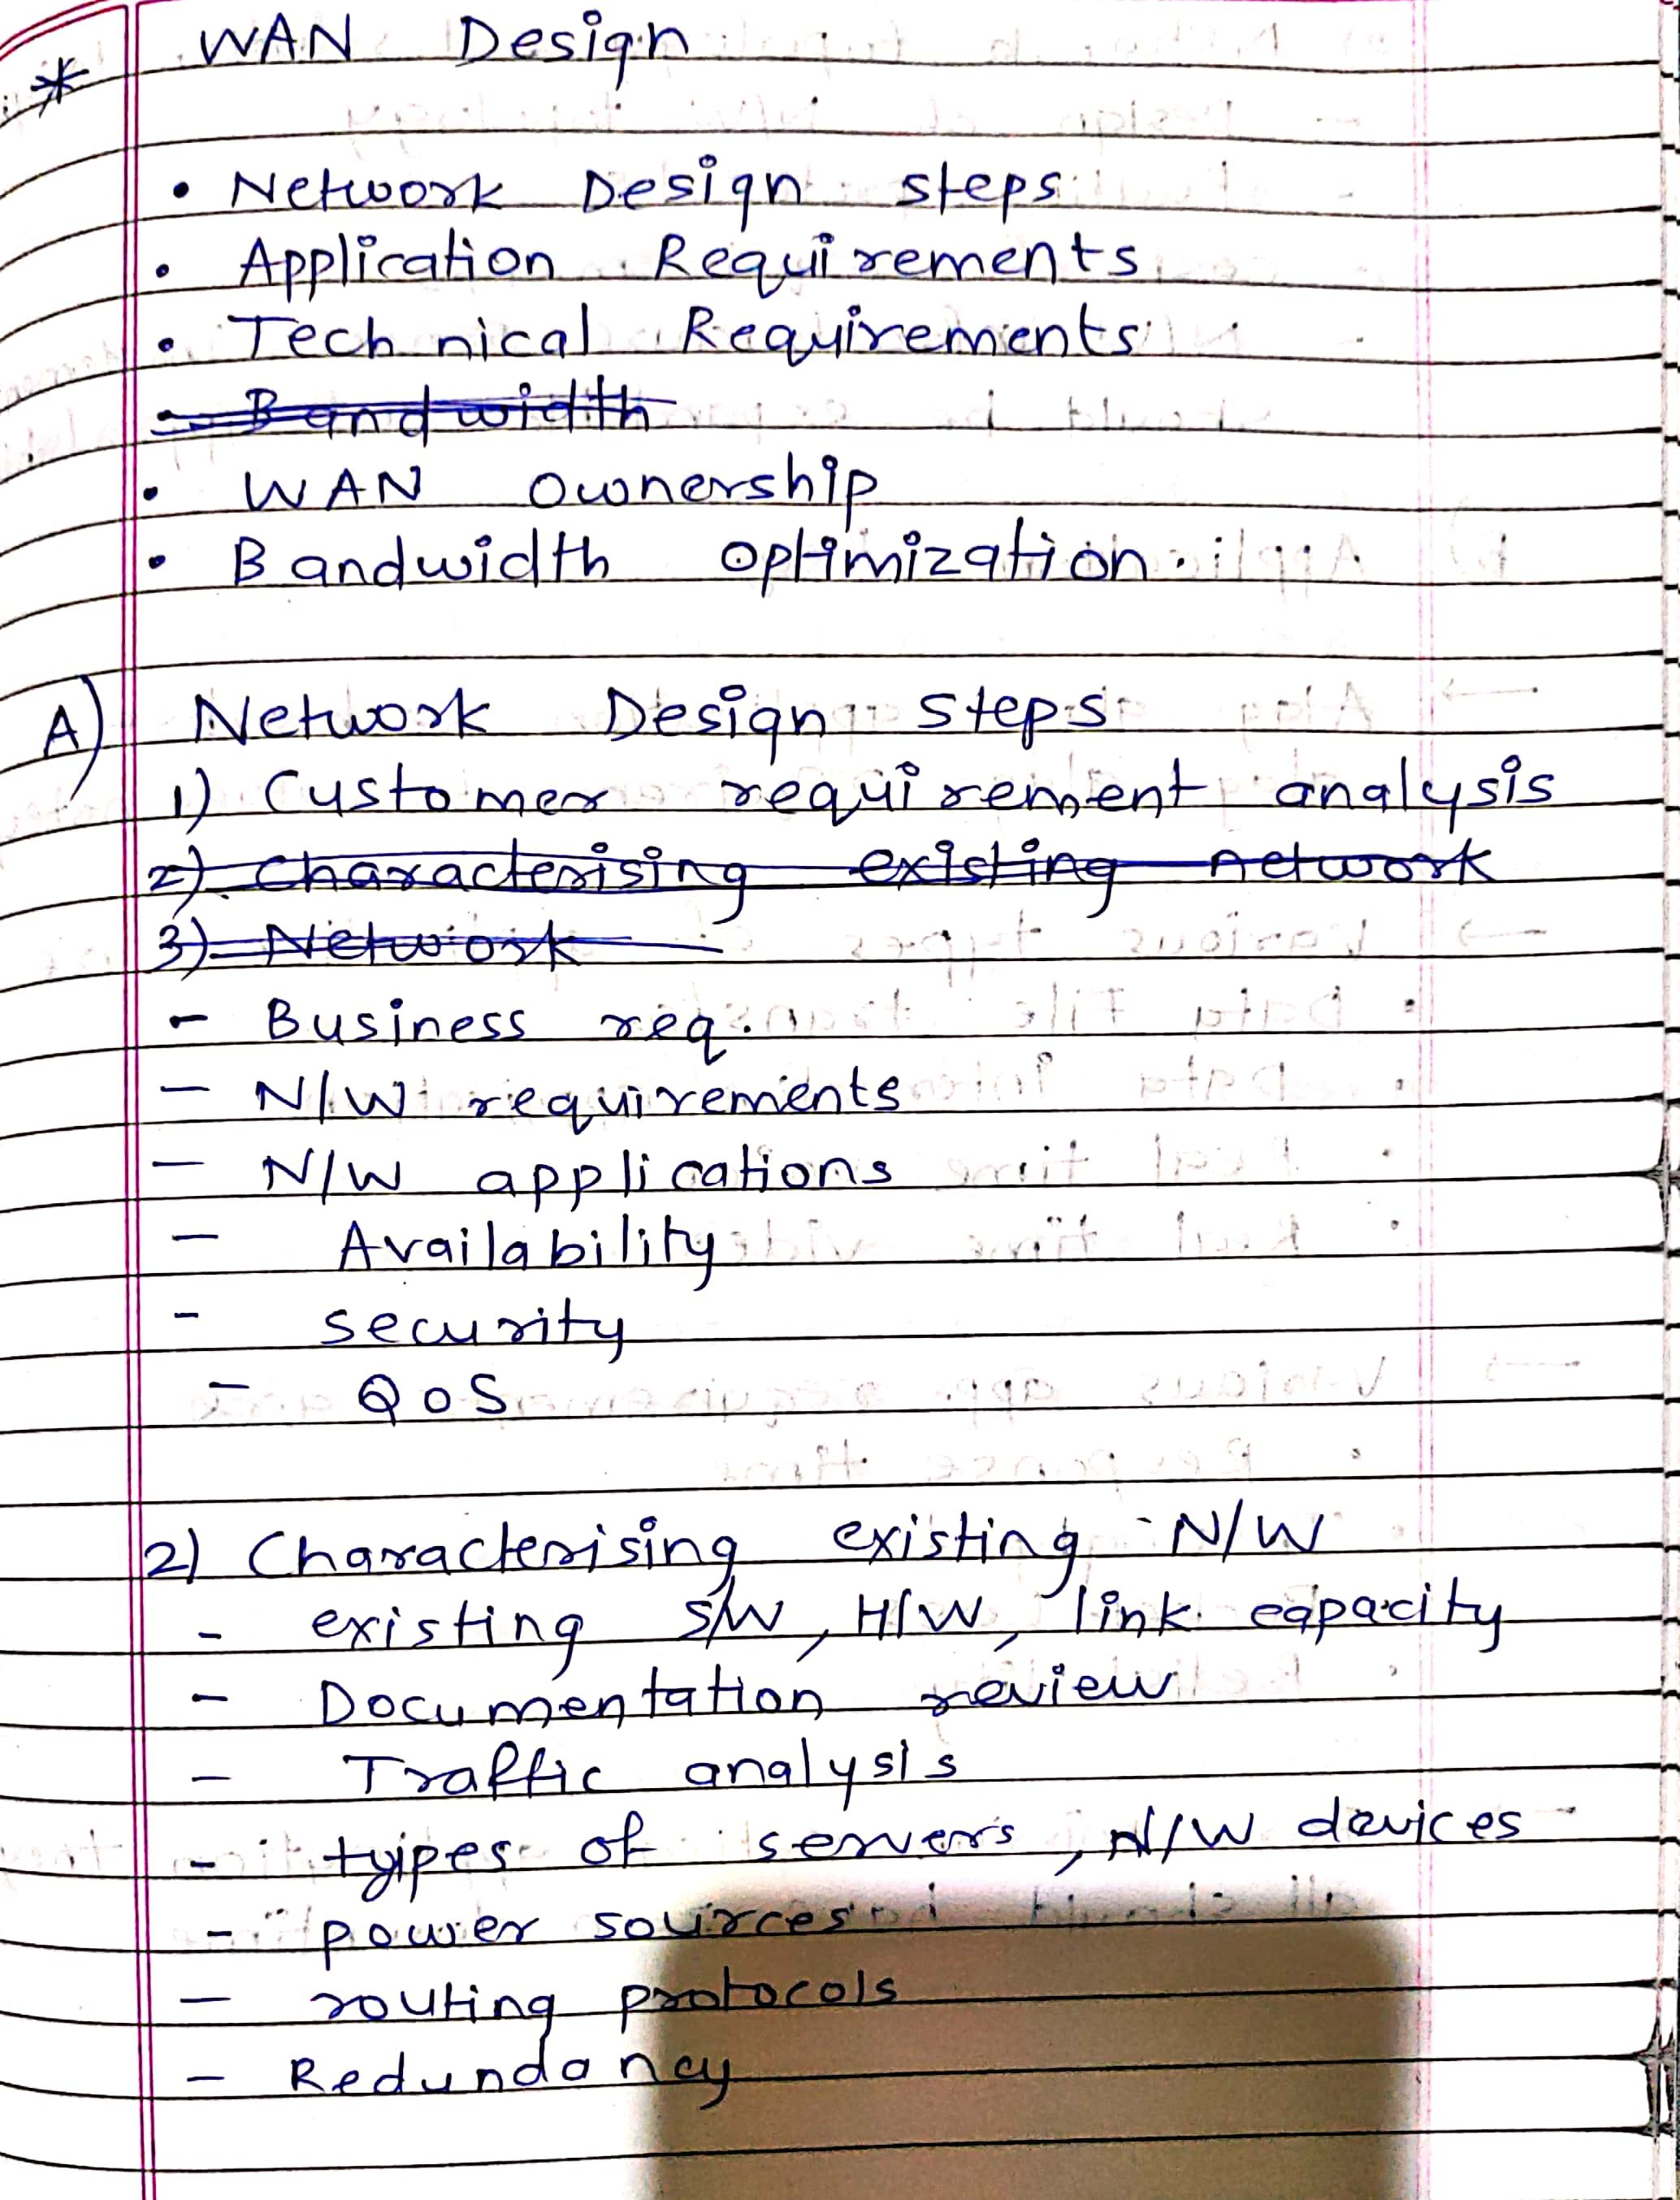 * WAN Design
• Network Design steps
• Application Requirements
• Technical Requirements
- Bandwidth
• WAN Ownership
• Bandwidth optimization.
A) Network Design steps
1) Customer requirement analysis
2) Characterising existing network
3) Network
- Business req.
- N/W requirements
- N/W applications
- Availability
- security
- QoS
2) Characterising existing N/W
- existing S/W, H/W, link capacity
- Documentation review
- Traffic analysis
- types of servers, N/W devices
- power sources
- routing protocols
- Redundancy